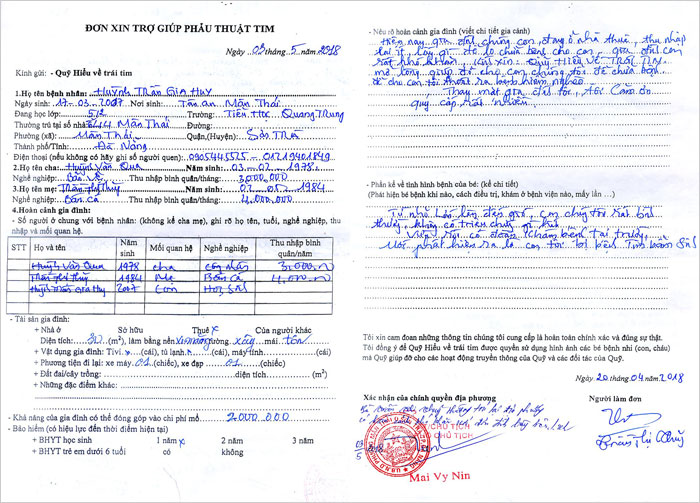 ĐƠN XIN TRỢ GIÚP PHẪU THUẬT TIM
Ngày 03 tháng 5 năm 2018
Kính gửi: - Quỹ Hiểu về trái tim
1.Họ tên bệnh nhân: Huỳnh Trần Gia Huy
Ngày sinh: 17.03.2007 Nơi sinh: Tân an Mân Thái
Đang học lớp: 5/2 Trường: Tiểu Học Quang Trung
Thường trú tại số nhà Mân Thái Đường:
Phường (xã): Mân Thái Quận,(Huyện): Sơn Trà
Thành phố/Tỉnh: Đà Nẵng
Điện thoại (nếu không có hãy ghi số người quen): 0905445525 - 01219401849
2.Họ tên cha: Huỳnh Văn Qua Năm sinh: 03-02-1978
Nghề nghiệp: Bảo Vệ Thu nhập bình quân/tháng: 3.000.000
3.Họ tên mẹ: Trần Thị Thủy Năm sinh: 02.05.1984
Nghề nghiệp: Bán cá Thu nhập bình quân/tháng: 4.000.000
4.Hoàn cảnh gia đình:
- Số người ở chung với bệnh nhân: (không kể cha mẹ), ghi rõ họ tên, tuổi, nghề nghiệp, thu nhập bình quân/tháng.
STT Họ và tên Năm sinh Mối quan hệ Nghề nghiệp Thu nhập bình quân/năm
Huỳnh Văn Qua 1978 cha công nhân 3.000.000
Trần Thị Thủy 1984 Mẹ Bán cá 4.000.000
Huỳnh Trần Gia Huy 2007 Con Học Sinh
- Tài sản gia đình:
+ Nhà ở Sở hữu Thuê x Của người khác
Diện tích: 30 (m²), làm bằng nền xi măng tường xây mái tôn
+ Vật dụng gia đình: Tivi.x.(cái), tủ lạnh.x.(cái), máy tính (cái)
+ Phương tiện đi lại: xe máy 01 (chiếc), xe đạp 01 (chiếc).
+ Đất đai/cây trồng: diện tích (m²)
+ Những đặc điểm khác:
- Khả năng của gia đình có thể đóng góp vào chi phí mổ 2.000.000
- Bảo hiểm (có hiệu lực đến thời điểm hiện tại)
+ BHYT học sinh 1 năm x 2 năm 3 năm
+ BHYT trẻ em dưới 6 tuổi có không
- Nêu rõ hoàn cảnh gia đình (viết chi tiết gia cảnh)
Hiện nay gia đình chúng con đang ở nhà thuê, thu nhập
lại ít, lấy gì để lo chữa bệnh cho con gia đình con
rất khó khăn kính xin Quỹ Hiểu Về Trái Tim
mở lòng giúp đỡ cho con chúng tôi để chữa bệnh
để cho
Thay mặt gia đình tôi, tôi Cảm ơn
quý cấp rất nhiều.
- Phần kể về tình hình bệnh của bé: (kể chi tiết)
(Phát hiện bé bệnh khi nào, cách điều trị, khám ở bệnh viện nào, mấy lần ...)
Từ nhỏ lớn lên đến giờ, con chúng tôi rất bình
thường, không có triệu chứng gì hết
Vừa rồi có đoàn khám bệnh tại trường,
Mới phát hiện ra là con tôi bị bệnh Tim bẩm sinh
Tôi xin cam đoan những thông tin chúng tôi cung cấp là hoàn toàn chính xác và đúng sự thật.
Tôi đồng ý để Quỹ Hiểu về trái tim được quyền sử dụng hình ảnh các bé bệnh nhi (con, cháu)
mà Quỹ giúp đỡ cho các hoạt động truyền thông của Quỹ và các đối tác của Quỹ.
Ngày 20 tháng 04 năm 2018
Xác nhận của chính quyền địa phương Người làm đơn
CHỦ TỊCH
Trần Thị Thủy
Mai Vy Nin